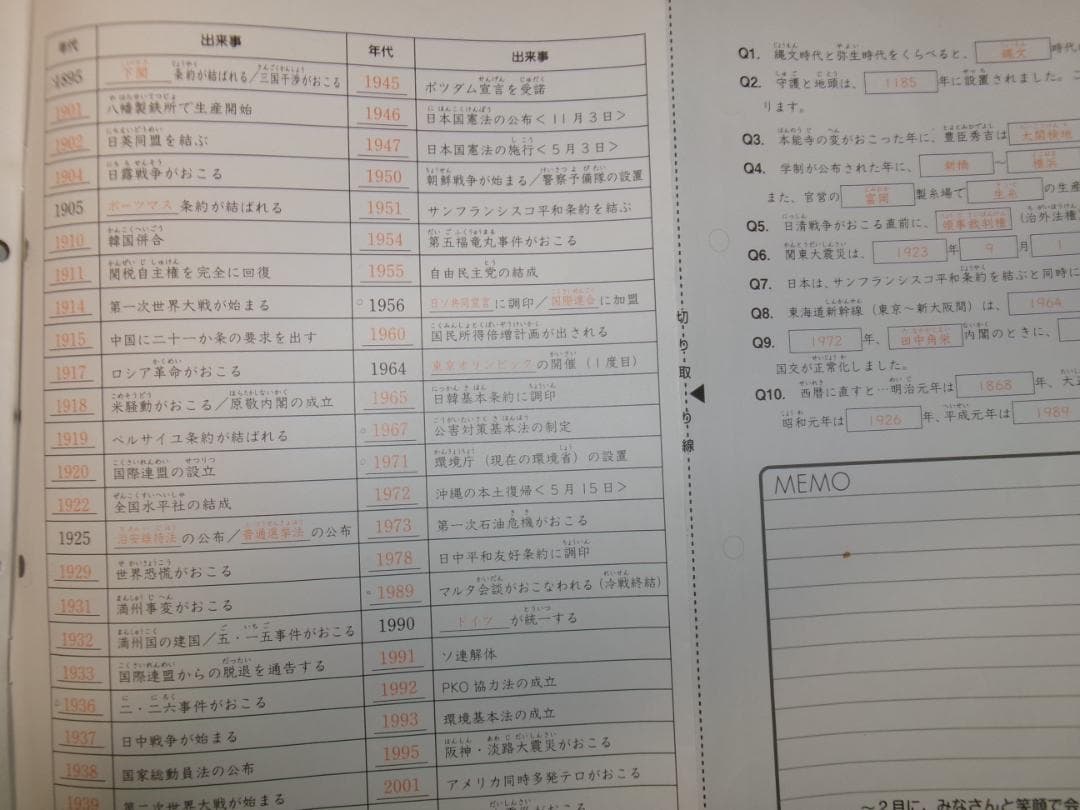 年代 出来事
1895 下関条約が結ばれる/三国干渉がおこる
1901 八幡製鉄所で生産開始
1902 日英同盟を結ぶ
1904 日露戦争がおこる
1905 ポーツマス条約が結ばれる
1910 韓国併合
1911 関税自主権を完全に回復
1914 第一次世界大戦が始まる
1915 中国に二十一か条の要求を出す
1917 ロシア革命がおこる
1918 米騒動がおこる/原敬内閣の成立
1919 ベルサイユ条約が結ばれる
1920 国際連盟の設立
1922 全国水平社の結成
1925 治安維持法の公布/普通選挙法の公布
1929 世界恐慌がおこる
1931 満州事変がおこる
1932 満州国の建国/五・一五事件がおこる
1933 国際連盟からの脱退を通告する
1936 二・二六事件がおこる
1937 日中戦争が始まる
1938 国家総動員法の公布
1939 第二次世界大戦が始まる
年代 出来事
1945 ポツダム宣言を受諾
1946 日本国憲法の公布<11月3日>
1947 日本国憲法の施行<5月3日>
1950 朝鮮戦争が始まる/警察予備隊の設置
1951 サンフランシスコ平和条約を結ぶ
1954 第五福竜丸事件がおこる
1955 自由民主党の結成
1956 日ソ共同宣言に調印/国際連合に加盟
1960 国民所得倍増計画が出される
1964 東京オリンピックの開催(1度目)
1965 日韓基本条約に調印
1967 公害対策基本法の制定
1971 環境庁(現在の環境省)の設置
1972 沖縄の本土復帰<5月15日>
1973 第一次石油危機がおこる
1978 日中平和友好条約に調印
1989 マルタ会談がおこなわれる(冷戦終結)
1990 ドイツが統一する
1991 ソ連解体
1992 PKO協力法の成立
1993 環境基本法の成立
1995 阪神・淡路大震災がおこる
2001 アメリカ同時多発テロがおこる
切り取り線
Q1. 縄文時代と弥生時代をくらべると、縄文時代
Q2. 守護と地頭は、1185年に設置されました。こ
ります。
Q3. 本能寺の変がおこった年に、豊臣秀吉は太閤検地
Q4. 学制が公布された年に、新橋~横浜
また、官営の富岡製糸場で生糸の生産
Q5. 日清戦争がおこる直前に、領事裁判権(治外法権
Q6. 関東大震災は、1923年9月1
Q7. 日本は、サンフランシスコ平和条約を結ぶと同時に
Q8. 東海道新幹線(東京~新大阪間)は、1964
Q9. 1972年、田中角栄内閣のときに、
国交が正常化しました。
Q10. 西暦に直すと…明治元年は1868年、大正
昭和元年は1926年、平成元年は1989
MEMO
~2月に、みなさんと笑顔で会